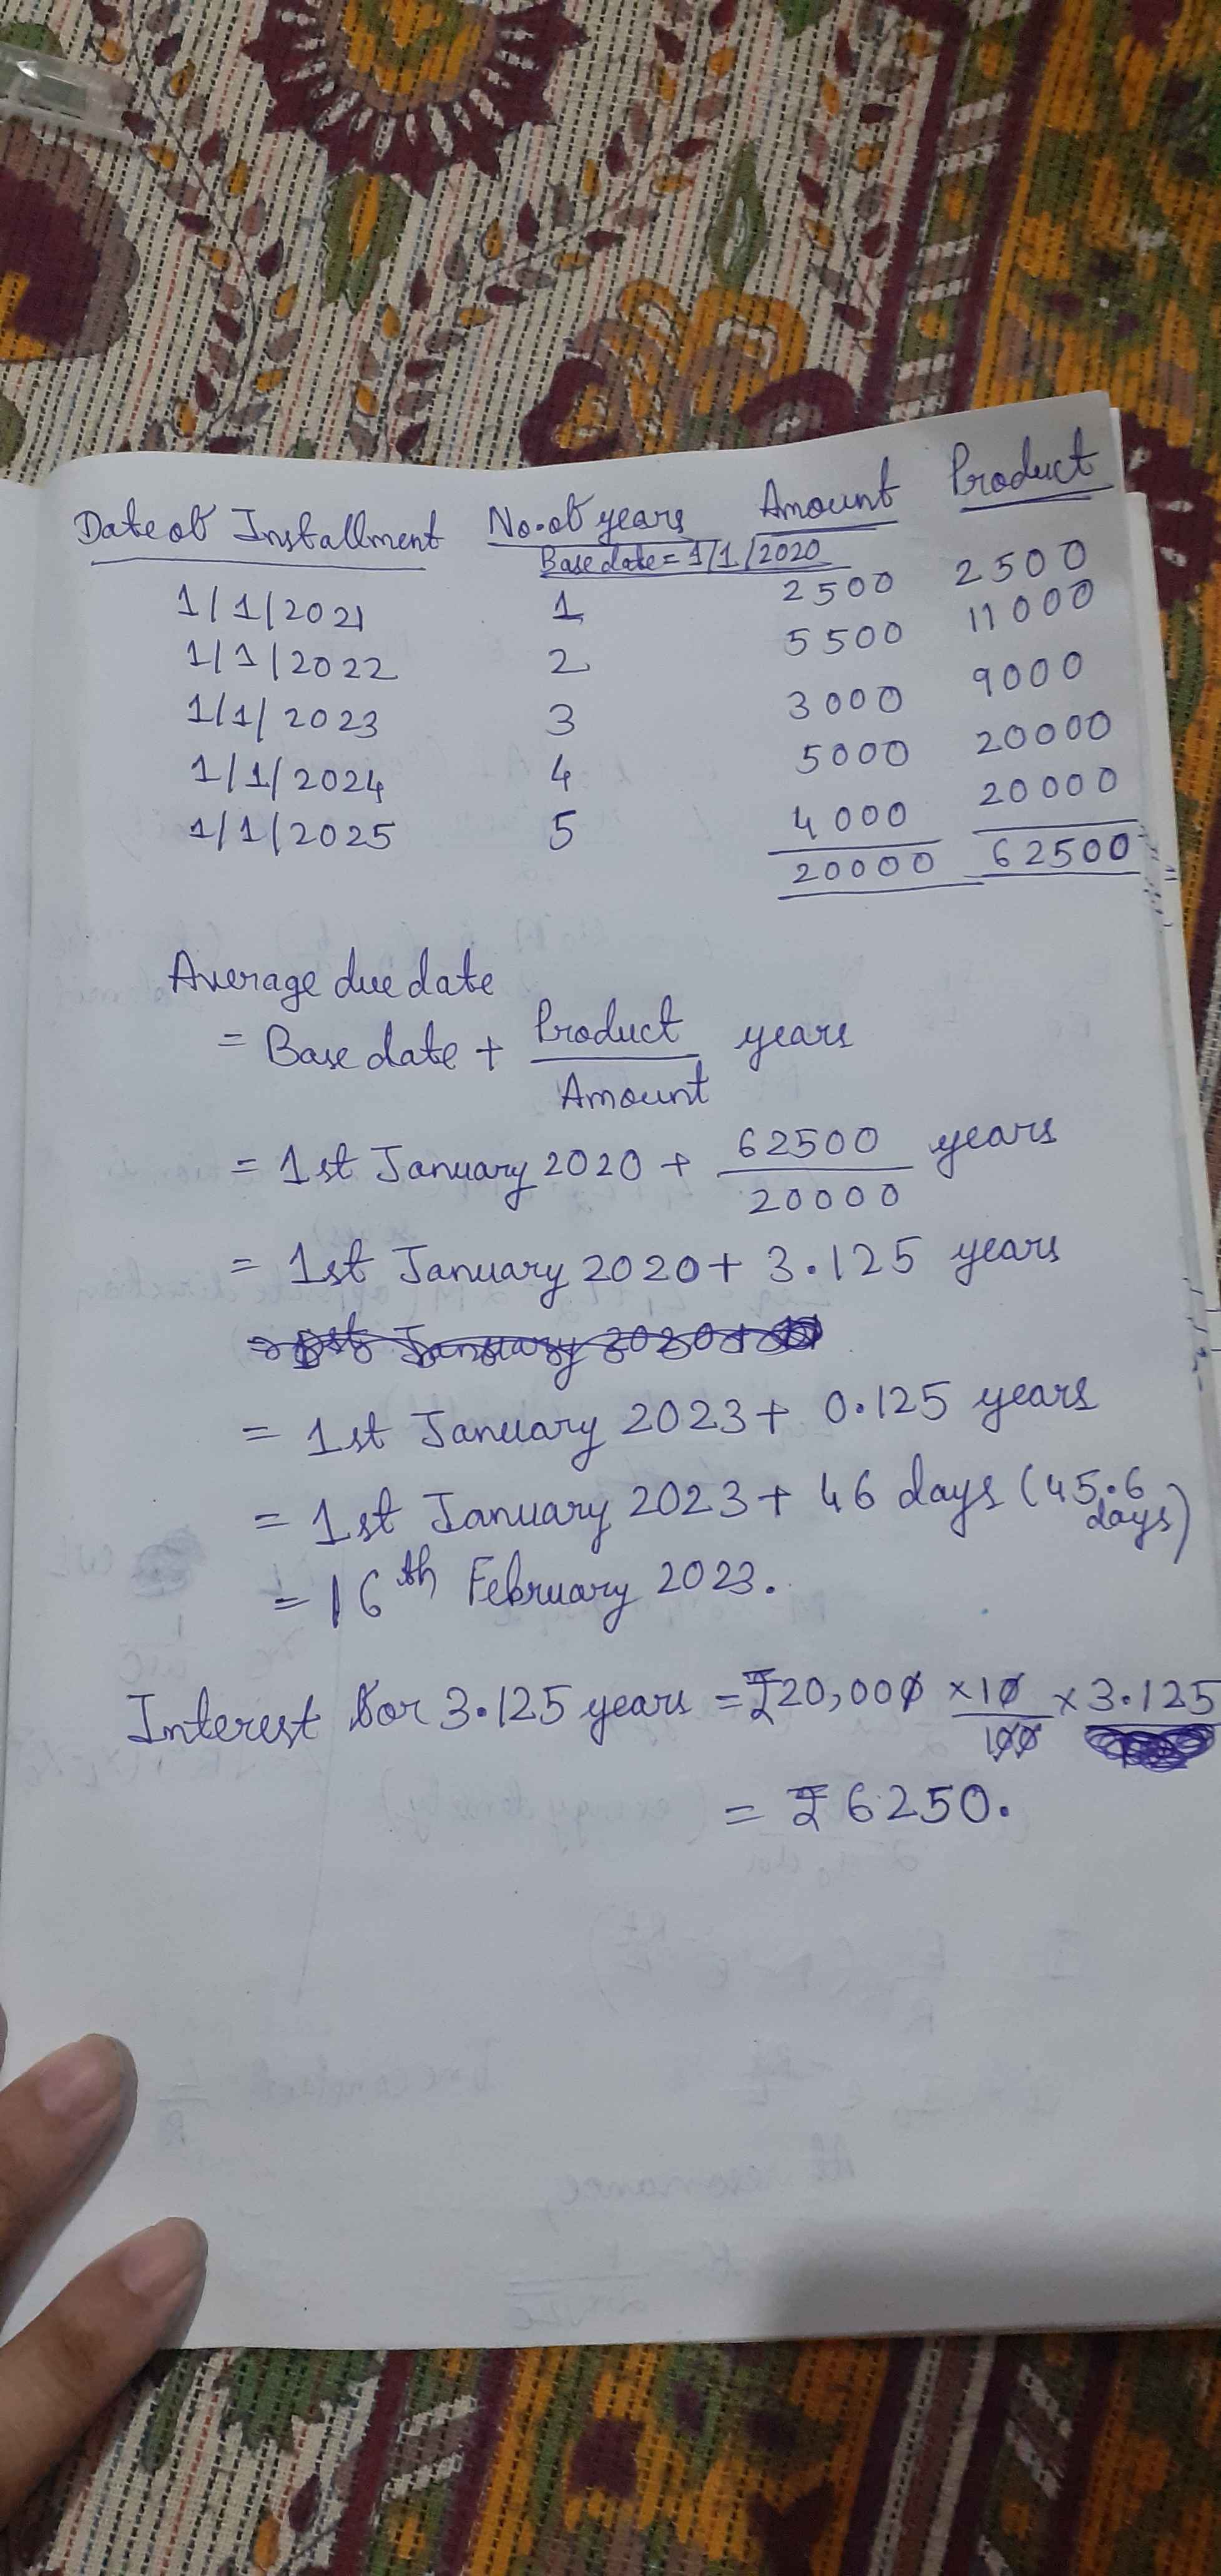 Date of Installment No. of years Amount Product
Base date = 1/1/2020
1/1/2021 1 2500 2500
1/1/2022 2 5500 11000
1/1/2023 3 3000 9000
1/1/2024 4 5000 20000
1/1/2025 5 4000 20000
20000 62500
Average due date
= Base date + Product/Amount years
= 1st January 2020 + 62500/20000 years
= 1st January 2020 + 3.125 years
= 1st January 2023 + 0.125 years
= 1st January 2023 + 46 days (45.6 days)
= 16th February 2023.
Interest for 3.125 years = ₹20,000 × 10/100 × 3.125
= ₹6250.